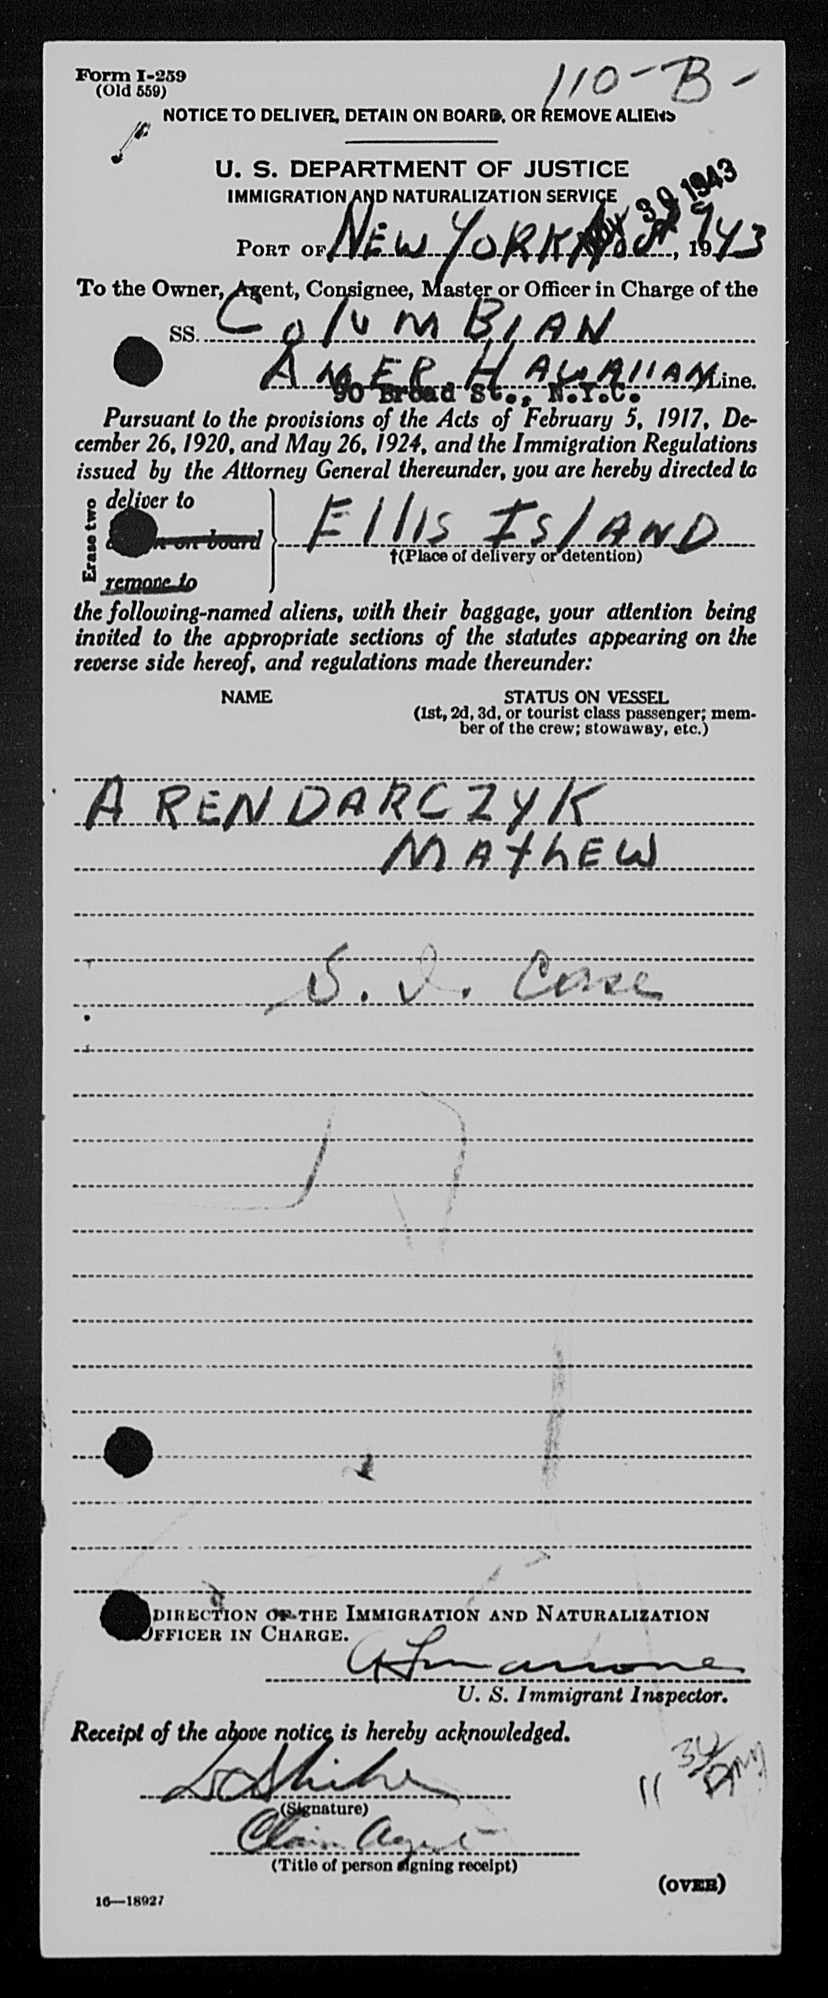 Form I-259
(Old 559)
110-B-
NOTICE TO DELIVER, DETAIN ON BOARD, OR REMOVE ALIENS
U. S. DEPARTMENT OF JUSTICE
IMMIGRATION AND NATURALIZATION SERVICE
30 1943
PORT OF NEW YORK, 1943
To the Owner, Agent, Consignee, Master or Officer in Charge of the
SS. COlUMBIAN
AMER HAWAIIAN Line.
90 Broad St., N.Y.C.
Pursuant to the provisions of the Acts of February 5, 1917, De-
cember 26, 1920, and May 26, 1924, and the Immigration Regulations
issued by the Attorney General thereunder, you are hereby directed to
Erase two
deliver to
on board
remove to
EllIS ISlAND
†(Place of delivery or detention)
the following-named aliens, with their baggage, your attention being
invited to the appropriate sections of the statutes appearing on the
reverse side hereof, and regulations made thereunder:
NAME STATUS ON VESSEL
(1st, 2d, 3d, or tourist class passenger; mem-
ber of the crew; stowaway, etc.)
ARENDARCZYK
MAthEW
S. I. Case
DIRECTION OF THE IMMIGRATION AND NATURALIZATION
OFFICER IN CHARGE.
U. S. Immigrant Inspector.
Receipt of the above notice is hereby acknowledged.
(Signature)
Claim Agent
(Title of person signing receipt)
(OVER)
16—18927